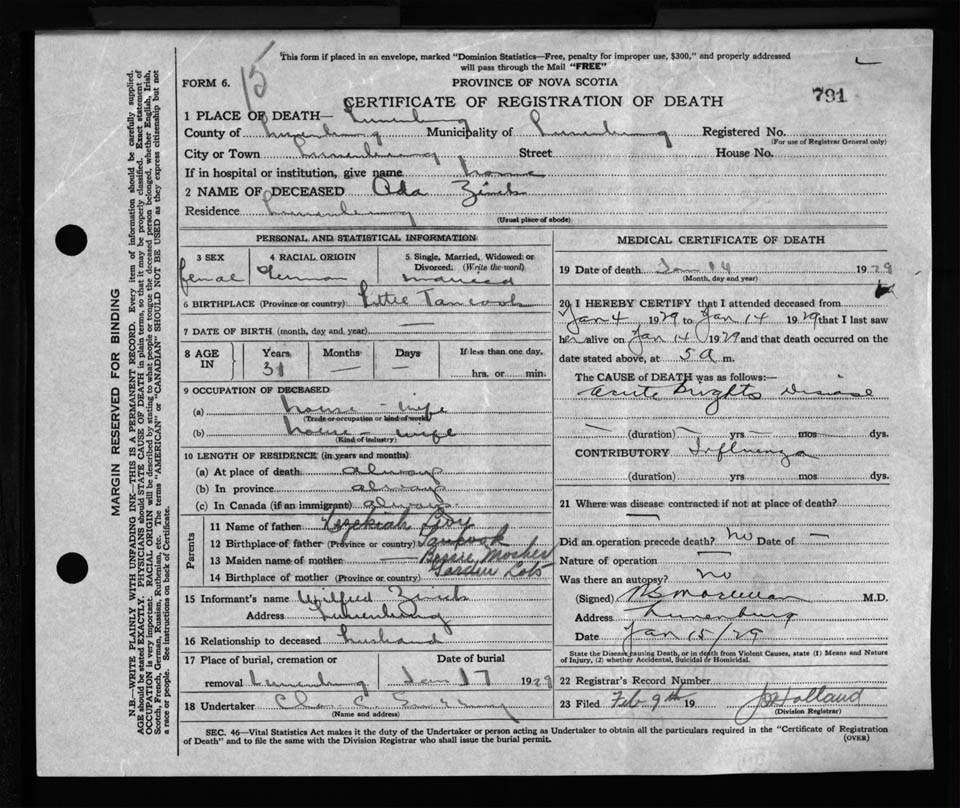 15
This form if placed in an envelope, marked "Dominion Statistics—Free, penalty for improper use, $300," and properly addressed
will pass through the Mail "FREE"
FORM 6.
PROVINCE OF NOVA SCOTIA
CERTIFICATE OF REGISTRATION OF DEATH
791
1 PLACE OF DEATH— Lunenburg
County of Lunenburg Municipality of Lunenburg Registered No.
(For use of Registrar General only)
City or Town Lunenburg Street House No.
If in hospital or institution, give name home
2 NAME OF DECEASED Ada Zinck
Residence Lunenburg
(Usual place of abode)
PERSONAL AND STATISTICAL INFORMATION
3 SEX 4 RACIAL ORIGIN 5 Single, Married, Widowed or Divorced. (Write the word)
female German married
6 BIRTHPLACE (Province or country) Little Tancook
7 DATE OF BIRTH (month, day and year) —
8 AGE IN Years Months Days If less than one day,
31 — — hrs. or min.
9 OCCUPATION OF DECEASED
(a) house - wife
(Trade or occupation or kind of work)
(b) house - wife
(Kind of industry)
10 LENGTH OF RESIDENCE (in years and months)
(a) At place of death always
(b) In province always
(c) In Canada (if an immigrant) always
Parents
11 Name of father Hezekiah
12 Birthplace of father (Province or country) Tancook
13 Maiden name of mother Bessie Mosher
14 Birthplace of mother (Province or country) Garden Lots
15 Informant's name Wilfred Zinck
Address Lunenburg
16 Relationship to deceased husband
17 Place of burial, cremation or Date of burial
removal Lunenburg Jan 17 1929
18 Undertaker Chas. C.
(Name and address)
MEDICAL CERTIFICATE OF DEATH
19 Date of death Jan 14 1929
(Month, day and year)
20 I HEREBY CERTIFY that I attended deceased from
Jan 4 1929 to Jan 14 1929 that I last saw
her alive on Jan 14 1929 and that death occurred on the
date stated above, at 5 a m.
The CAUSE of DEATH was as follows:—
Acute Brights Disease
— (duration) — yrs — mos dys.
CONTRIBUTORY Influenza
(duration) yrs mos dys.
21 Where was disease contracted if not at place of death?
—
Did an operation precede death? no Date of —
Nature of operation —
Was there an autopsy? no
(Signed) M.D.
Address Lunenburg
Date Jan 15/29
State the Disease causing Death, or in death from Violent Causes, state (1) Means and Nature
of Injury, (2) whether Accidental, Suicidal or Homicidal.
22 Registrar's Record Number
23 Filed Feb 9th 19 Holland
(Division Registrar)
SEC. 46—Vital Statistics Act makes it the duty of the Undertaker or person acting as Undertaker to obtain all the particulars required in the "Certificate of Registration
of Death" and to file the same with the Division Registrar who shall issue the burial permit.
(OVER)
MARGIN RESERVED FOR BINDING
N.B.—WRITE PLAINLY WITH UNFADING INK—THIS IS A PERMANENT RECORD. Every item of information should be carefully supplied.
AGE should be stated EXACTLY. PHYSICIANS should STATE CAUSE OF DEATH in plain terms, so that it may be properly classified. Exact statement of
OCCUPATION is very important. RACIAL ORIGIN will be described by stating to what people or tongue the deceased person belonged, whether English, Irish,
Scotch, French, German, Russian, Ruthenian, etc. The terms "AMERICAN" or "CANADIAN" SHOULD NOT BE USED as they express citizenship but not
a race or people. See instructions on back of Certificate.